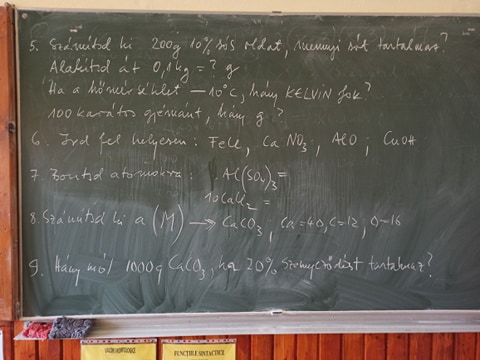 5. Számítsd ki 200g 10% sós oldat, mennyi sót tartalmaz?
Alakítsd át 0,1 kg = ? g
Ha a hőmérséklet –10°C, hány KELVIN fok?
100 karátos gyémánt, hány g?
6. Írd fel helyesen: FeCl, CaNO₃, AlO, CuOH
7. Bontsd atomokra: Al(SO₄)₃ =
10CaH₂ =
8. Számítsd ki a (M) → CaCO₃, Ca=40, C=12, O=16
9. Hány mól 1000g CaCO₃, ha 20% szennyeződést tartalmaz?
FUNCȚIILE SINTACTICE